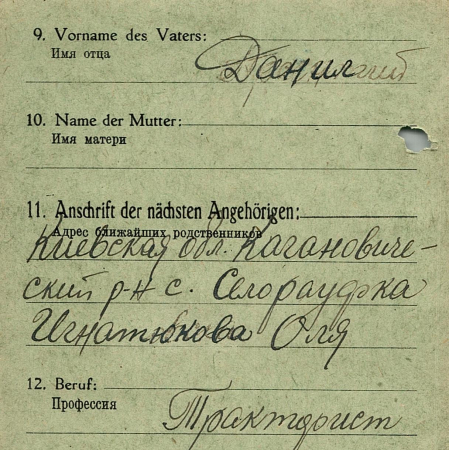 9. Vorname des Vaters:
Имя отца
Данил
10. Name der Mutter:
Имя матери
11. Anschrift der nächsten Angehörigen:
Адрес ближайших родственников
Киевская обл. Кагановиче-
ский р-н с.
Игнатюкова Оля
12. Beruf:
Профессия
Тракторист